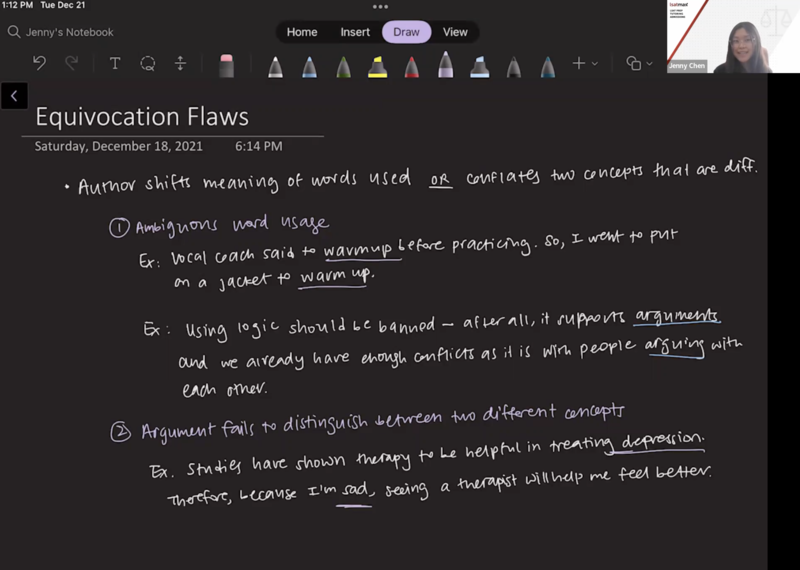 1:12 PM Tue Dec 21
Jenny's Notebook
Home Insert Draw View
Jenny Chen
Equivocation Flaws
Saturday, December 18, 2021 6:14 PM
• Author shifts meaning of words used OR conflates two concepts that are diff.
① Ambiguous word usage
Ex: Vocal coach said to warmup before practicing. So, I went to put
on a jacket to warm up.
Ex: Using logic should be banned – after all, it supports arguments
and we already have enough conflicts as it is with people arguing with
each other.
② Argument fails to distinguish between two different concepts
Ex. Studies have shown therapy to be helpful in treating depression.
Therefore, because I'm sad, seeing a therapist will help me feel better.